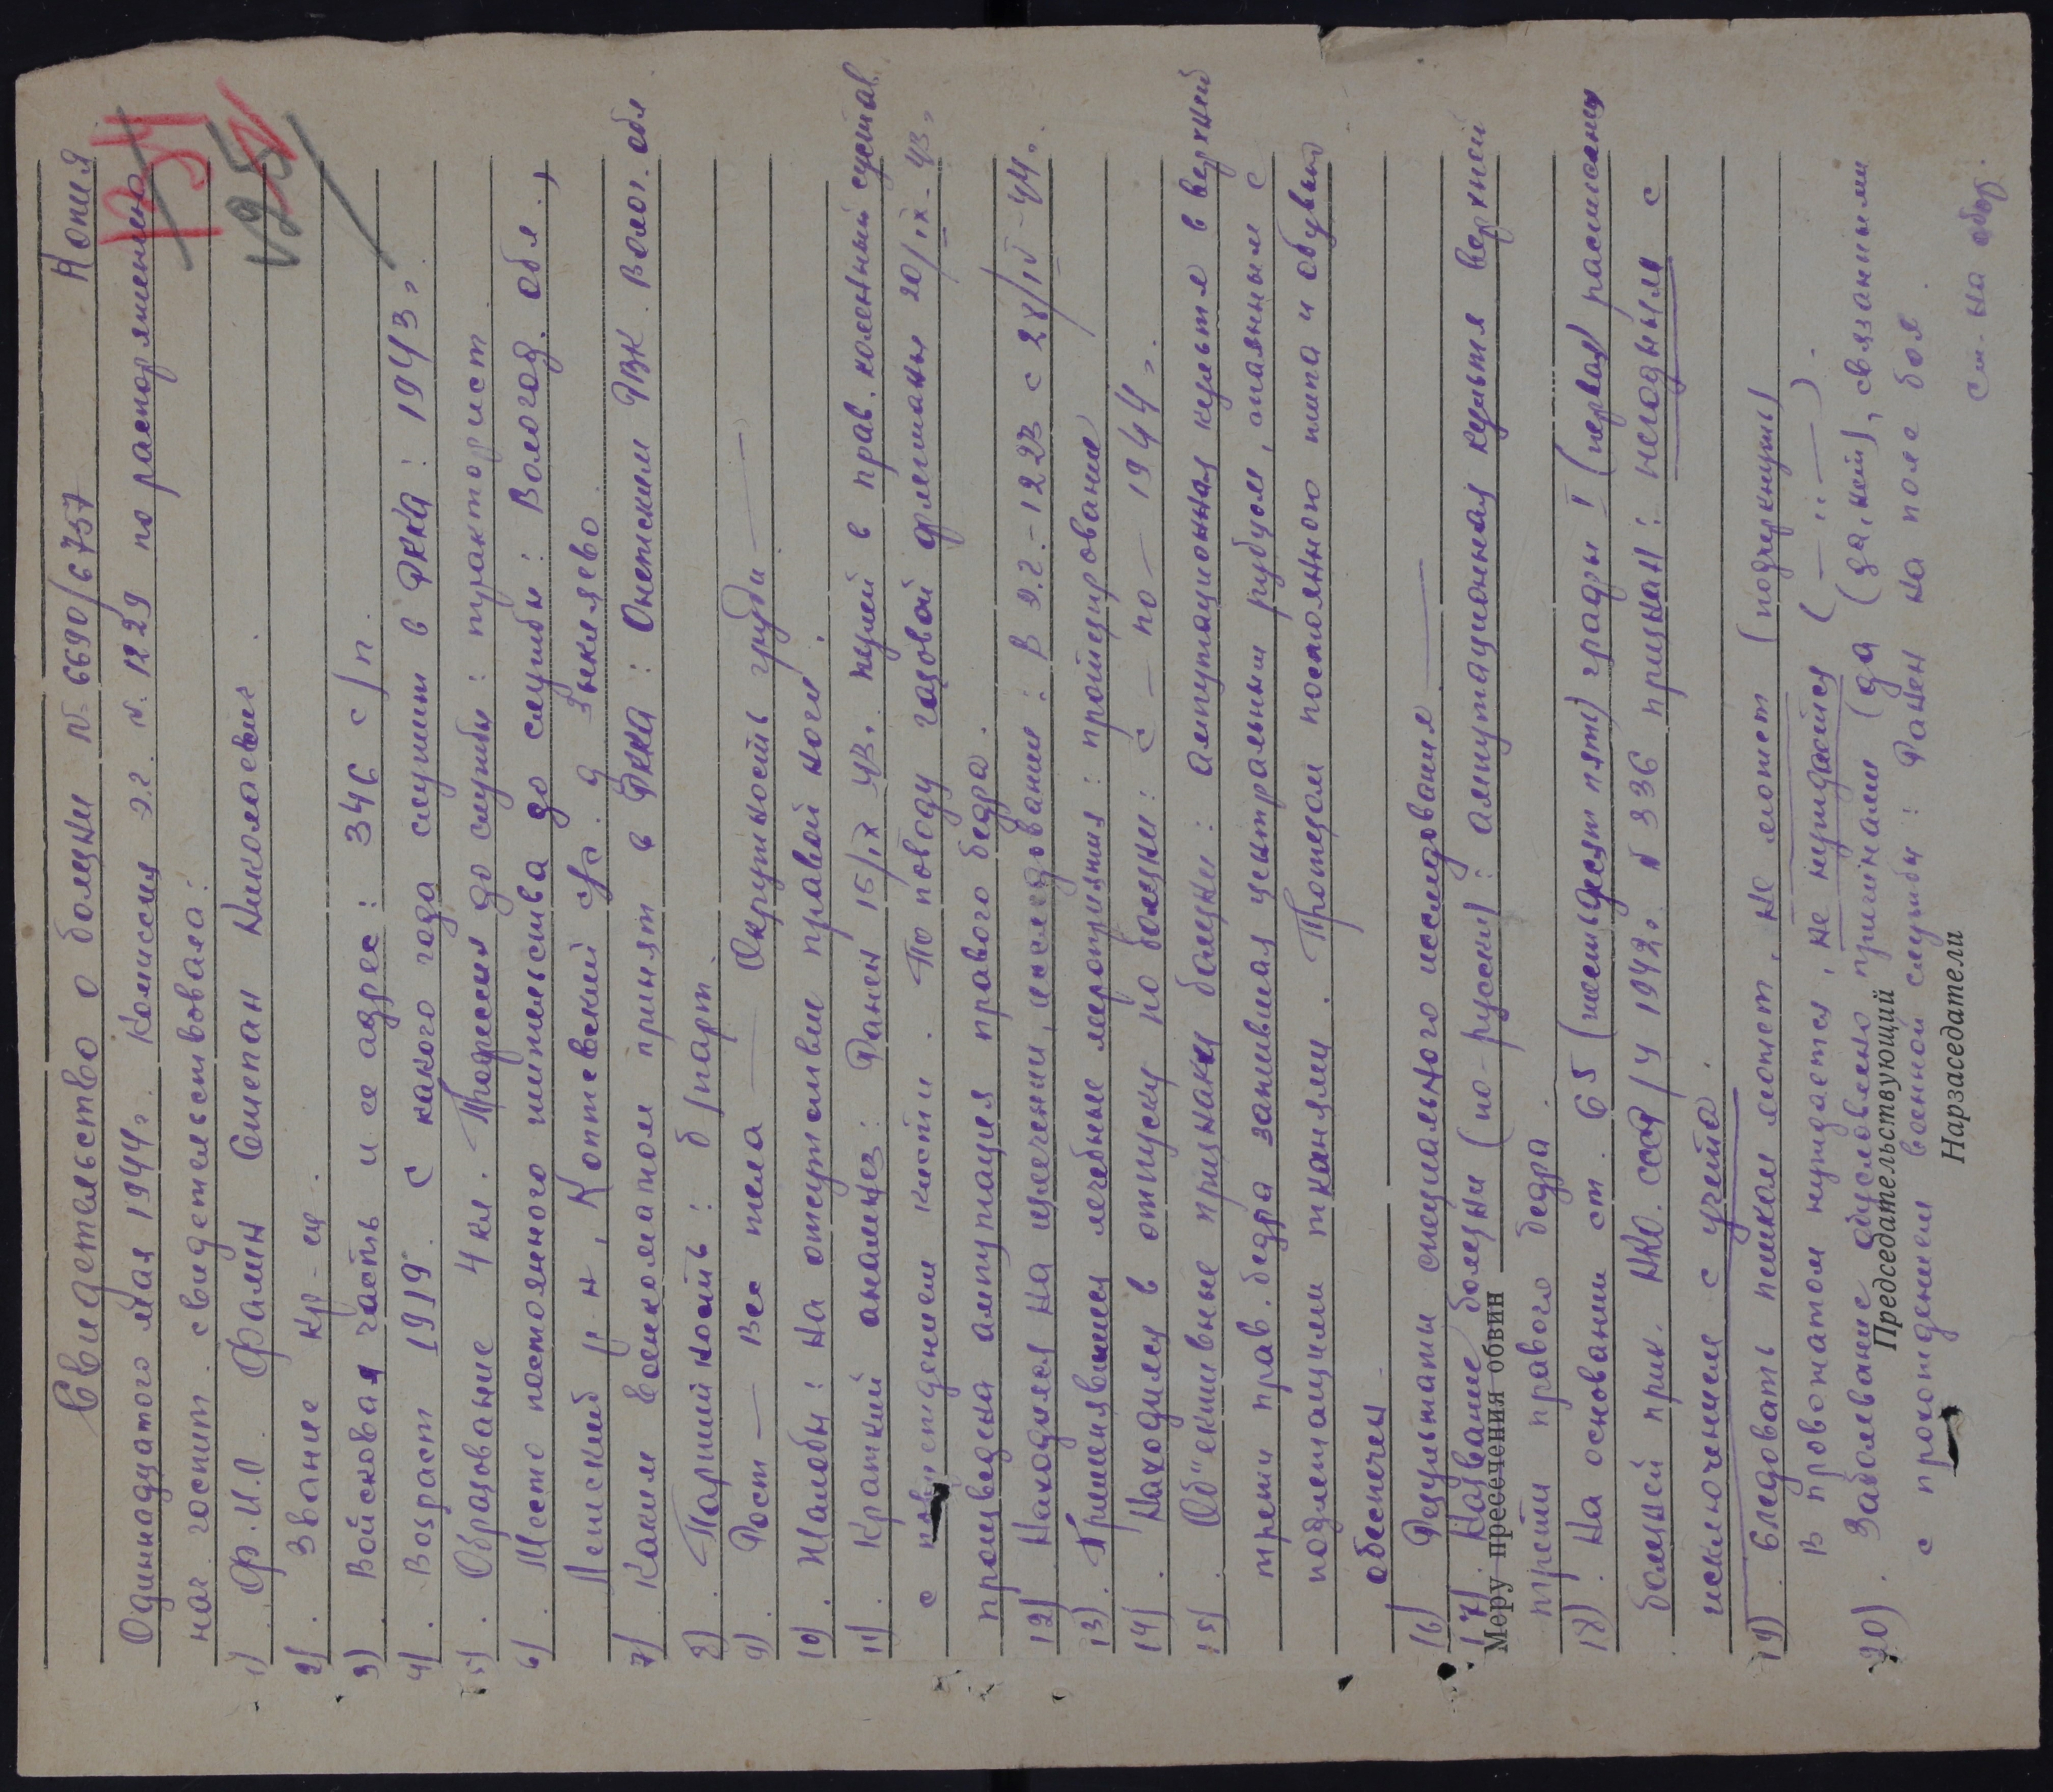 Свидетельство о болезни № 6690/6757 Копия
134
125
Одиннадцатого мая 1944 г. Комиссия э.г. № 1229 по распоряжению
нач. госпит. свидетельствовала:
1) Ф.И.О. Фамин Степан Николаевич
2). Звание кр-ец.
3). Войсковая часть и ее адрес: 346 с/п.
4). Возраст 1919. С какого года служит в РККА: 1943 г.
5). Образование 4 кл. Профессия до службы: тракторист
6). Место постоянного жительства до службы: Вологод. обл.,
р-н, Коптевский с/с. д
7) Каким военкоматом принят в РККА: Онежским РВК. Волог. обл
8). Партийность: б/парт.
9). Рост — Вес тела — Окружность груди —
10). Жалобы: на отсутствие правой ноги.
11). Краткий анамнез: Ранен 15/IX 43 г. пулей в прав. коленный сустав
с повреждением кости. По поводу газовой флегмоны 20/IX-43 г.
произведена ампутация правого бедра.
12) Находился на излечении, исследование: В э.г.-1223 с 28/IV-44 г.
13). Применявшиеся лечебные мероприятия: протезирование
14). Находился в отпуску по болезни: с — по — 1944 г.
15). Об"ективные признаки болезни: ампутационная культя в верхней
трети прав. бедра зажившая центральным рубцом, спаянным с
подлежащими тканями. Протезом постоянного типа и обувью
обеспечен
16) Результаты специального исследования —
17). Название болезни (по-русски): ампутационная культя верхней
Меру пресечения обвин
трети правого бедра.
18). На основании ст. 65 (шестьдесят пять) графы I (первая) расписания
болезней прик. НКО. СССР/у 1942 г. № 336 признан: негодным с
исключением с учета.
19) Следовать пешком может, не может (подчеркнуть)
В провожатом нуждается, не нуждается (—"—).
20). Заболевание обусловлено причинами (да, нет), связанными
Председательствующий
с прохождением военной службы: Ранен на поле боя.
Нарзаседатели
см. на обор.